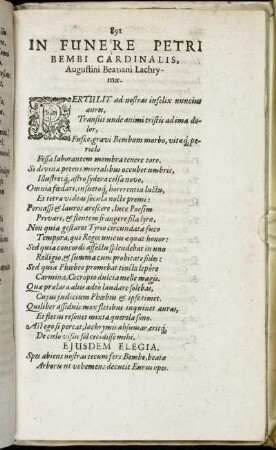 891
IN FUNERE PETRI
BEMBI CARDINALIS,
Augustini Beatiani Lachry-
mæ.
PERTULIT ad nostras infelix nuncius
aures,
Transit unde animi tristis ad ima do-
lor,
Fusce, gravi Bembum morbo, vitæq́; pe-
riclo
Fessa laborantem membra tenere toro.
Si divina petens mortalibus occubet umbris,
Illustretq́; astro sydera celsa novo,
Omnia fœdari, insuetoq́; horrentia luctu,
Et tetra videas secula nocte premi:
Parnassi & lauros arescere, luce Poesim
Privari, & flentem frangere fila lyræ.
Non quia gestaret Tyrio circundata fuco
Tempora, qui Reges unicus equat honor:
Sed quia concordi assensu splendebat in uno
Religio, & summa cum probitate fides:
Sed quia Phœbeo promebat tinctu lepore
Carmina, Cecropio dulcia melle magis.
Quæ præ lara aliis adeò laudare solebas,
Cujus judicium Phœbus & ipse timet.
Quolibet assiduis mox fletibus inquinet auras,
Et fletus resonet mixta querela sono.
Ast ego si pereas, lachrymis absumar aritq́;
De cœlo visus sol cecidisse mihi.
EJUSDEM ELEGIA.
Spes abiens nostras tecum fers Bembe, beatæ
Arboris ut vehemens decutit Eurus opes.